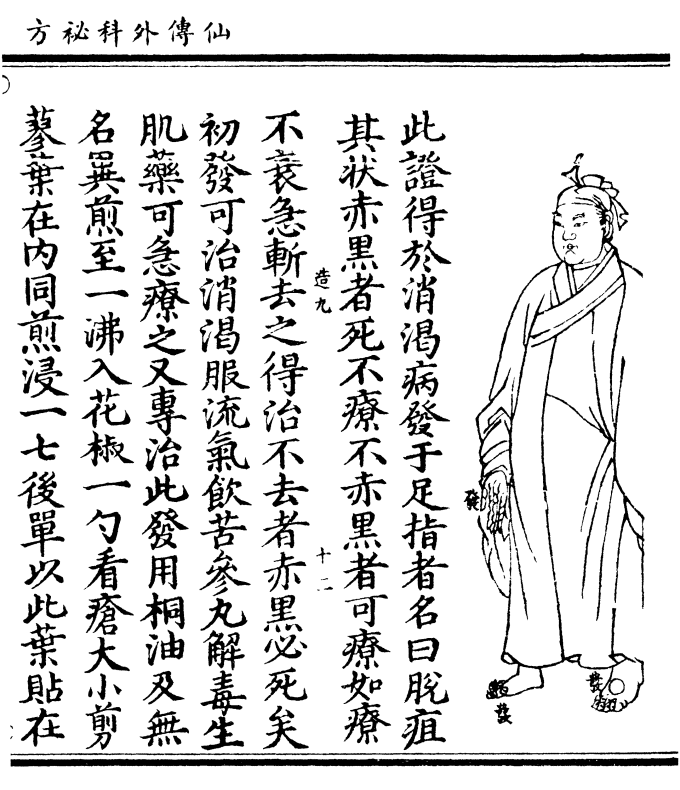 仙傳外科祕方
發
此證得於消渴病發于足指者名曰脫疽
其狀赤黑者死不療不赤黑者可療如療
造九
十二
不衰急斬去之得治不去者赤黑必死矣
初發可治消渴服流氣飲苦參丸解毒生
肌藥可急療之又專治此發用桐油及無
名異煎至一沸入花椒一勺看瘡大小剪
蓼葉在内同煎浸一七後單以此葉貼在